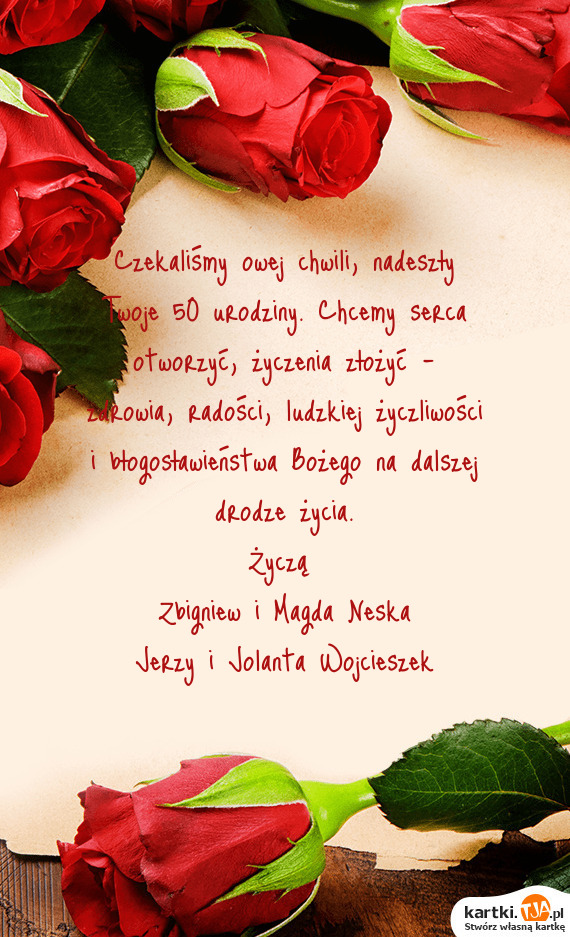 Czekaliśmy owej chwili, nadeszły
Twoje 50 urodziny. Chcemy serca
otworzyć, życzenia złożyć -
zdrowia, radości, ludzkiej życzliwości
i błogosławieństwa Bożego na dalszej
drodze życia.
Życzą
Zbigniew i Magda Neska
Jerzy i Jolanta Wojcieszek
kartki.TJA.pl
Stwórz własną kartkę